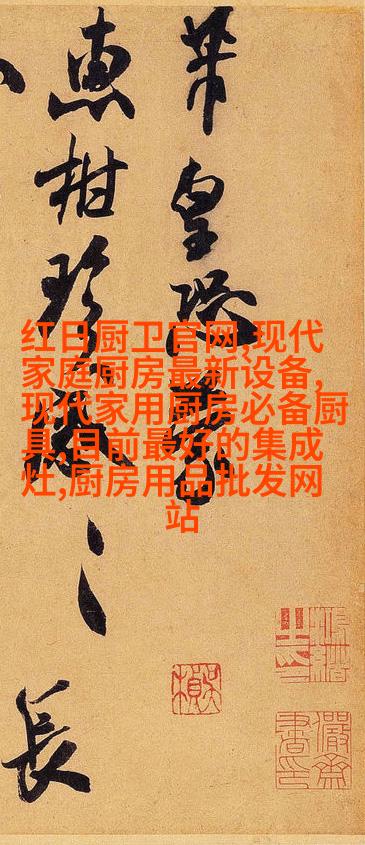 皇恐
惠柑珍感〻
長
红日厨卫官网,现代
家庭厨房最新设备,
现代家用厨房必备厨
具,目前最好的集成
灶,厨房用品批发网
站